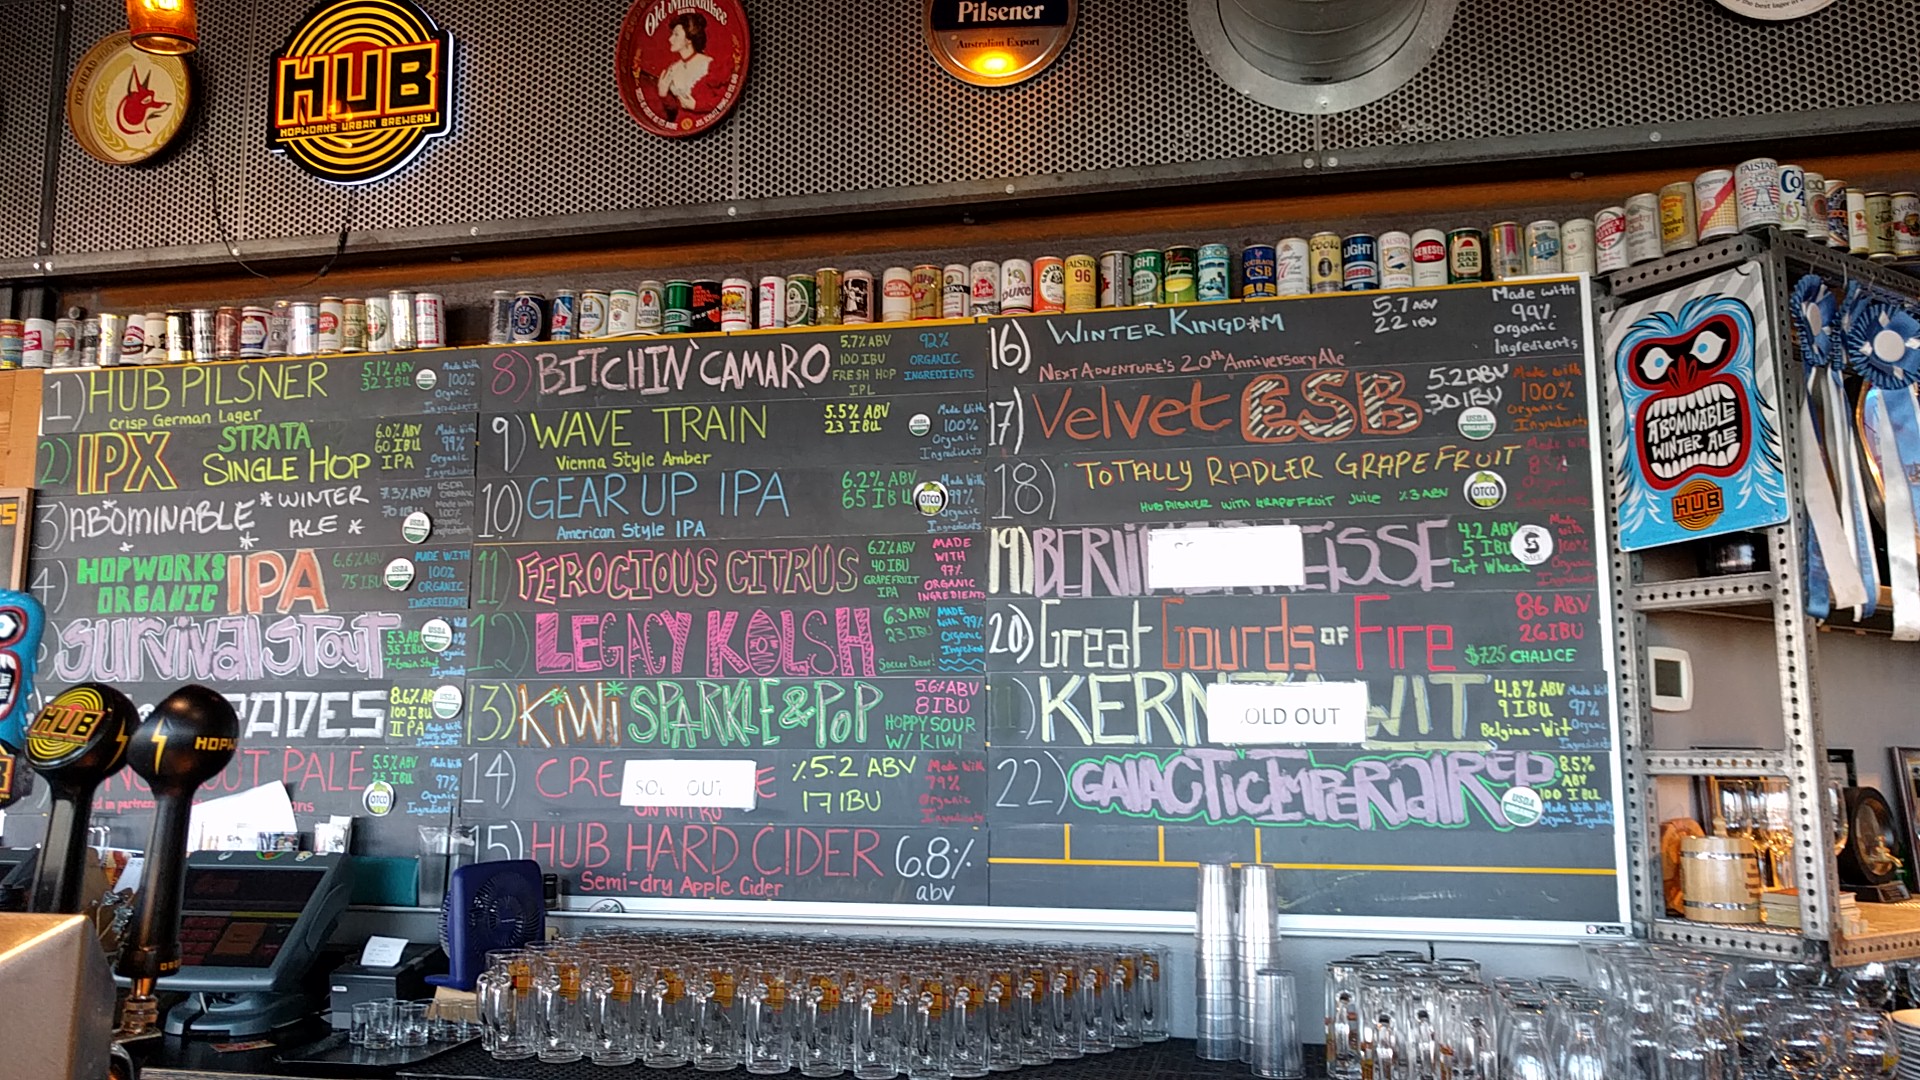 HUB
HOPWORKS URBAN BREWERY
Old Milwaukee
BEER
Pilsener
Australian Export
1) HUB PILSNER
Crisp German Lager
5.1% ABV
32 IBU
Made With
100%
Organic
Ingredients
2) IPX
STRATA
SINGLE HOP
6.0% ABV
60 IBU
IPA
Made With
99%
Organic
Ingredients
3) ABOMINABLE *WINTER
ALE *
7.3% ABV
70 IBU
4) HOPWORKS
ORGANIC IPA
6.6% ABV
75 IBU
MADE WITH
100%
ORGANIC
INGREDIENTS
SURVIVAL STOUT
5.3 AB
35 IBU
7-Grain Stout
8.6% AB
100 IBU
II PA
PALE
5.5% ABV
25 IBU
97%
Organic
8) BITCHIN' CAMARO
5.7% ABV
100 IBU
FRESH HOP
IPL
92%
ORGANIC
INGREDIENTS
9) WAVE TRAIN
Vienna Style Amber
5.5% ABV
23 IBU
USDA
ORGANIC
Made With
100%
Organic
Ingredients
10) GEAR UP IPA
American Style IPA
6.2% ABV
65 IBU
OTCO
99%
Organic
Ingredients
11) FEROCIOUS CITRUS
6.2% ABV
40 IBU
GRAPEFRUIT
IPA
MADE
WITH
97%
ORGANIC
INGREDIENTS
12) LEGACY KOLSH
6.3 ABV
23 IBU
Soccer Beer!
MADE
With 99%
Organic
Ingredient
13) KiWi SPARKLE & POP
5.6% ABV
8 IBU
HOPPY SOUR
W/ KIWI
14) CRE
SOL OUT
E
ON NITRO
%5.2 ABV
17 IBU
Made With
79%
Organic
Ingredients
15) HUB HARD CIDER
Semi-dry Apple Cider
6.8%
abv
16) WINTER KINGD*M
NEXT ADVENTURE'S 20th Anniversary Ale
5.7 ABV
22 IBU
Made with
99%
Organic
Ingredients
17) Velvet ESB
5.2 ABV
30 IBU
USDA
ORGANIC
Made with
100%
Organic
Ingredients
18) TOTALLY RADLER GRAPEFRUIT
HUB PILSNER WITH GRAPEFRUIT JUICE
OTCO
19) BERLI
EISSE
4.2 ABV
5 IBU
Tart Wheat
Made
with
100%
Organic
Ingredients
20) Great Gourds OF Fire
8.6 ABV
26 IBU
$7.25 CHALICE
KERN
OLD OUT
WIT
4.8% ABV
9 IBU
Belgian-Wit
Made With
97%
Organic
Ingredients
22) GALACTIC IMPERIAL RED
8.5%
ABV
100 IBU
USDA
ORGANIC
Made With 100%
Organic Ingredients
ABOMINABLE
WINTER ALE
HUB
HUB
HOPW